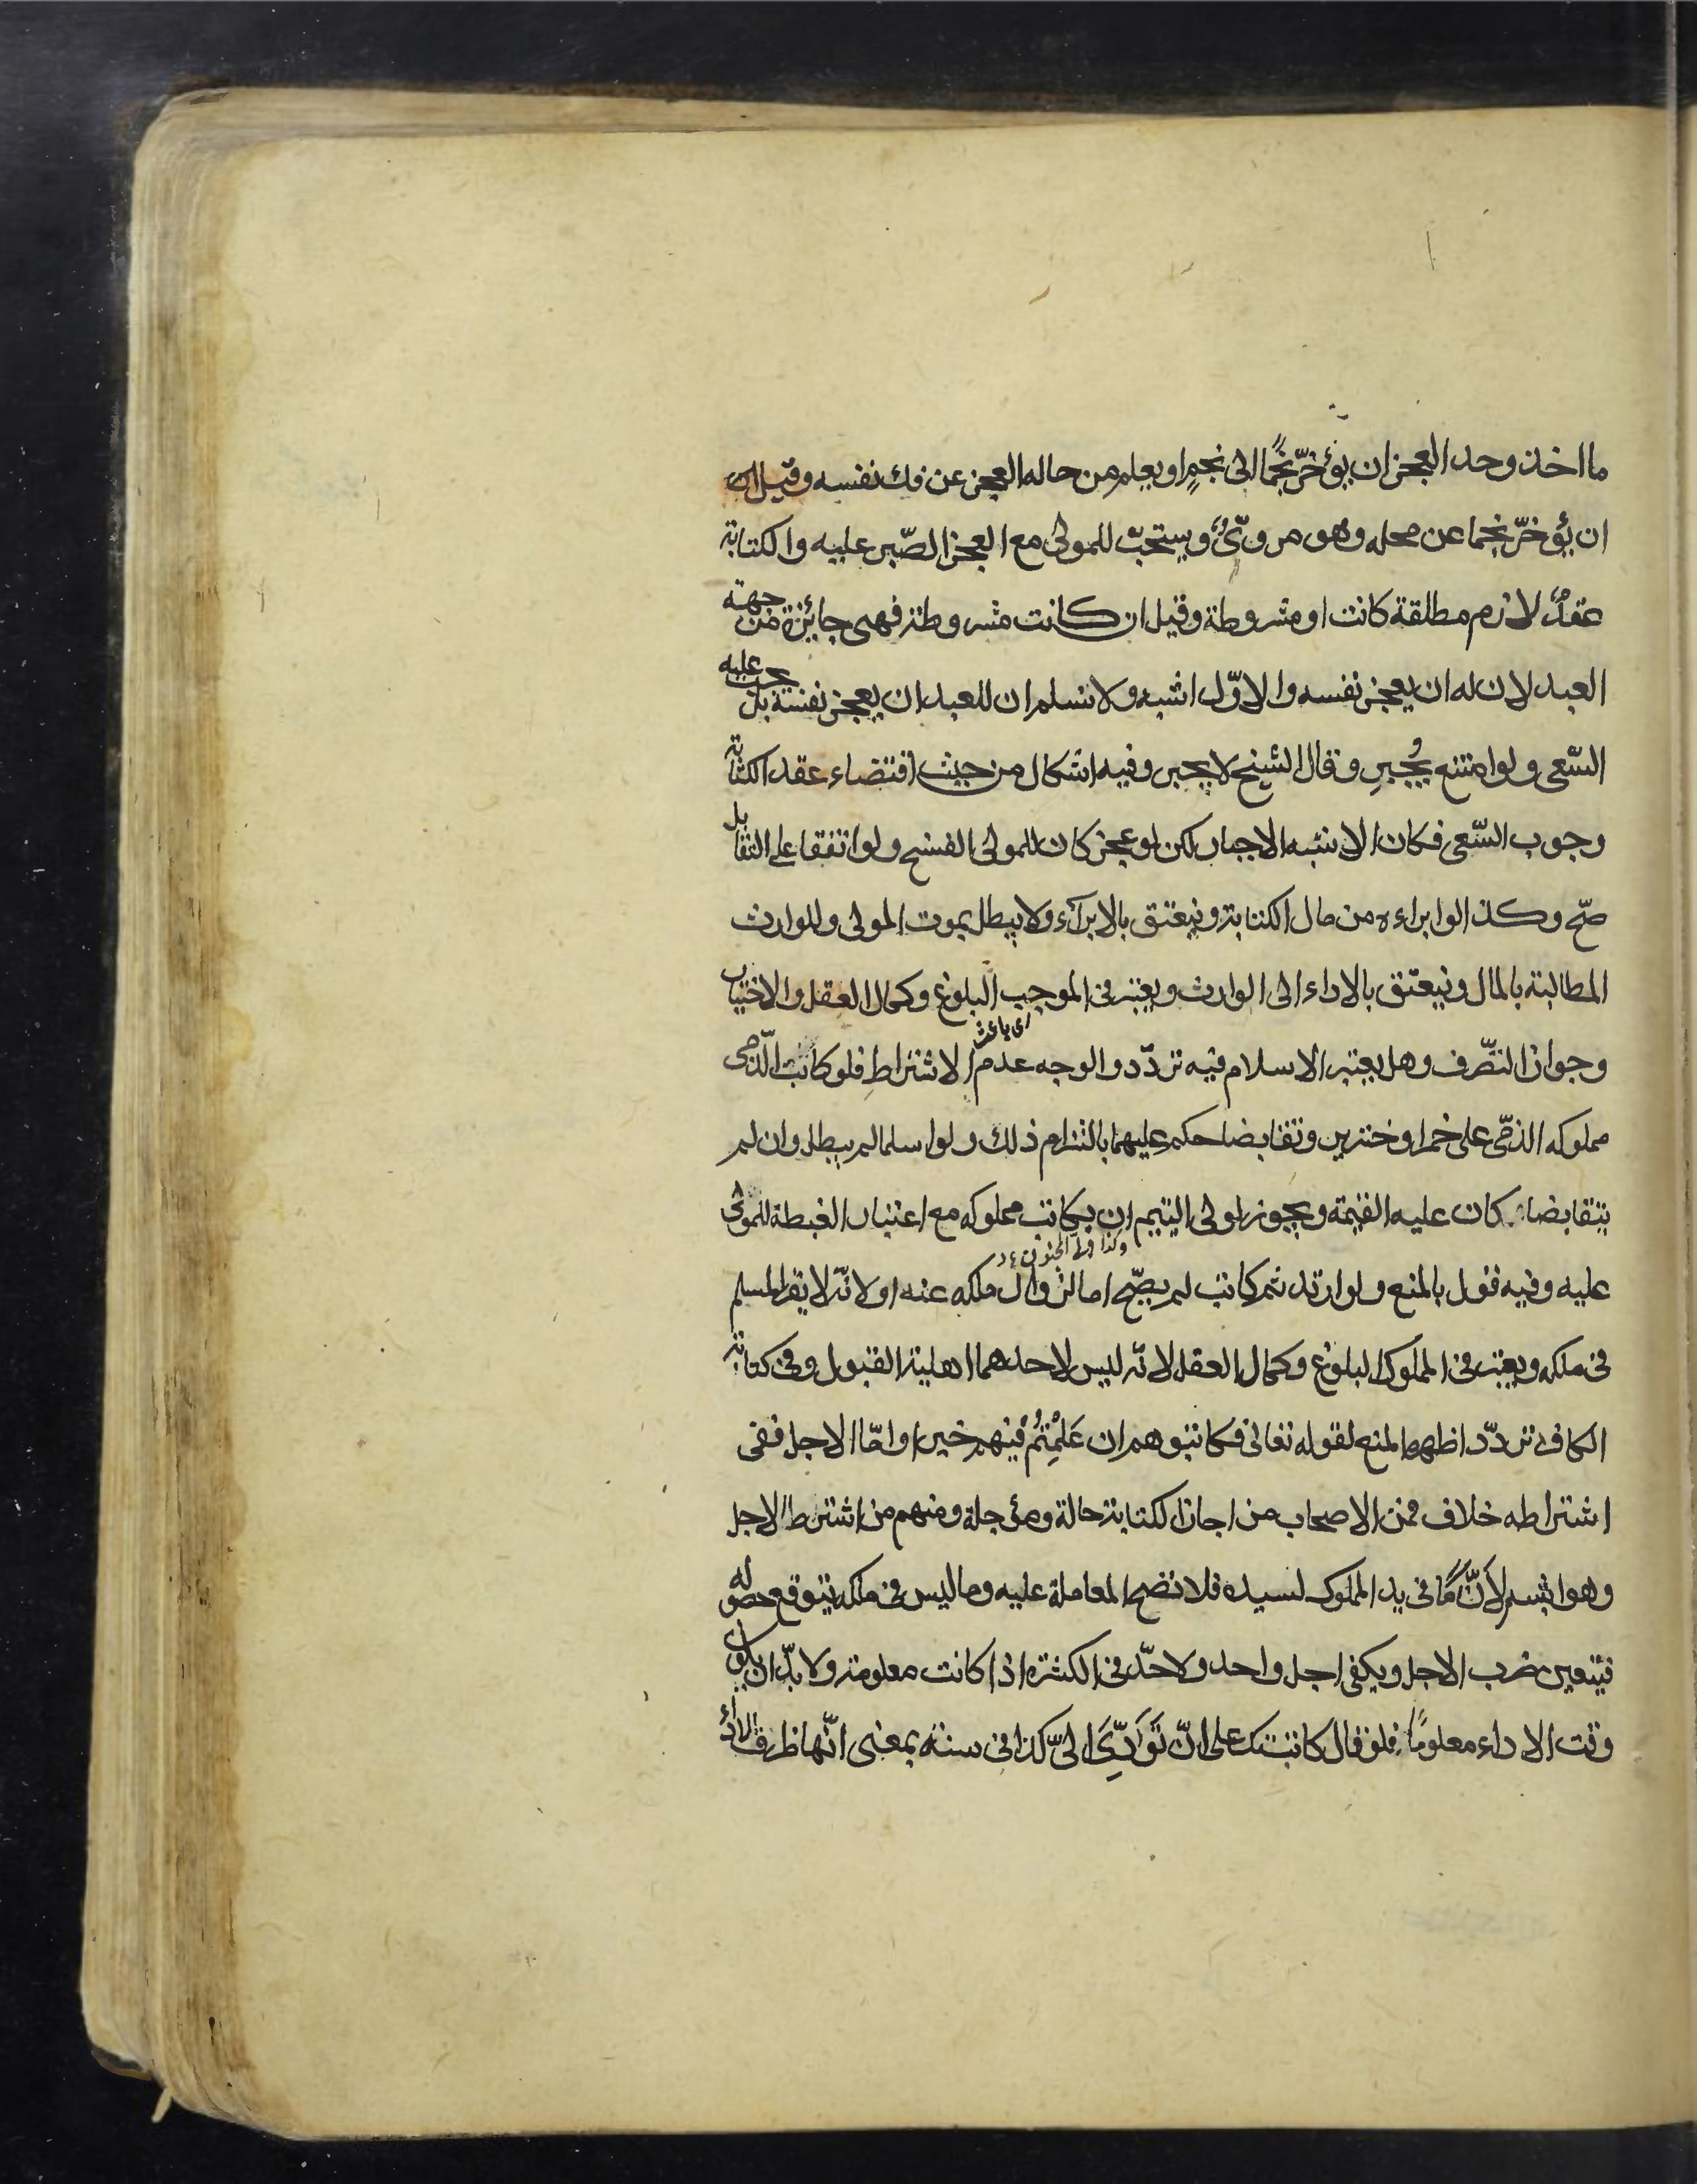 ما اخذ وحد العجز ان يؤخرّ نجمًا الى نجمٍ او يعلم من حاله العجز عن فك نفسه وقيل
ان يؤخرّ نجما عن محله وهو مروىٌّ ويستحبّ للمولى مع العجز الصّبر عليه والكتابة
عقدٌ لازم مطلقة كانت او مشروطة وقيل ان كانت مشروطة فهى جائزة من جهة
العبد لان له ان يعجز نفسه والاوّل اشبه ولا نسلم ان للعبد ان يعجز نفسه بل يجب عليه
السّعى ولو امتنع يُجبر وقال الشيخ لا يجبر وفيه اشكال من حيث اقتضاء عقد الكتابة
وجوب السّعى فكان الاشبه الاجبار لكن لو عجز كان للمولى الفسخ ولو اتفقا على التقابل
صحّ وكذا لو ابراءه من مال الكتابة وينعتق بالابرآء ولا يبطل بموت المولى وللوارث
المطالبة بالمال وينعتق بالاداء الى الوارث ويعتبر فى الموجب البلوغ وكمال العقل والاختيار
وجواز التصّرف وهل يعتبر الاسلام فيه تردّد والوجه عدم الاشتراط فلو كاتب الذّمى
مملوكه الذمّى على خمر او خنزير وتقابضا حكم عليهما بالتزام ذلك ولو اسلما لم يبطل وان لم
يتقابضا كان عليه القيمة ويجوز لولى اليتيم ان يكاتب مملوكه مع اعتبار الغبطة للمولى
وكذا ولى المجنون
عليه وفيه قول بالمنع ولو ارتد ثم كاتب لم يصحّ اما لزوال ملكه عنه او لانّه لا يقر المسلم
فى ملكه ويعتبر فى المملوك البلوغ وكمال العقل لانّه ليس لاحدهما اهلية القبول وفى كتابة
الكافر تردّد اظهره المنع لقوله تعالى فكاتبوهم ان عَلِمْتُمْ فيهم خيرا وامّا الاجل ففى
اشتراطه خلاف فمن الاصحاب من اجاز الكتابة حالة ومؤجلة ومنهم من اشترط الاجل
وهو اشبه لأَنّ مَا فى يد المملوك لسيده فلا تصح المعاملة عليه وما ليس فى ملكه يتوقع حصوله
فيتعين ضرب الاجل ويكفى اجل واحد ولا حدّ فى الكثرة اذا كانت معلومة ولا بدّ ان يكون
وقت الاداء معلومًا فلو قال كاتبتك على انّ تؤدّىَ الىّ كذا فى سنة بمعنى انّها ظرف الاداء